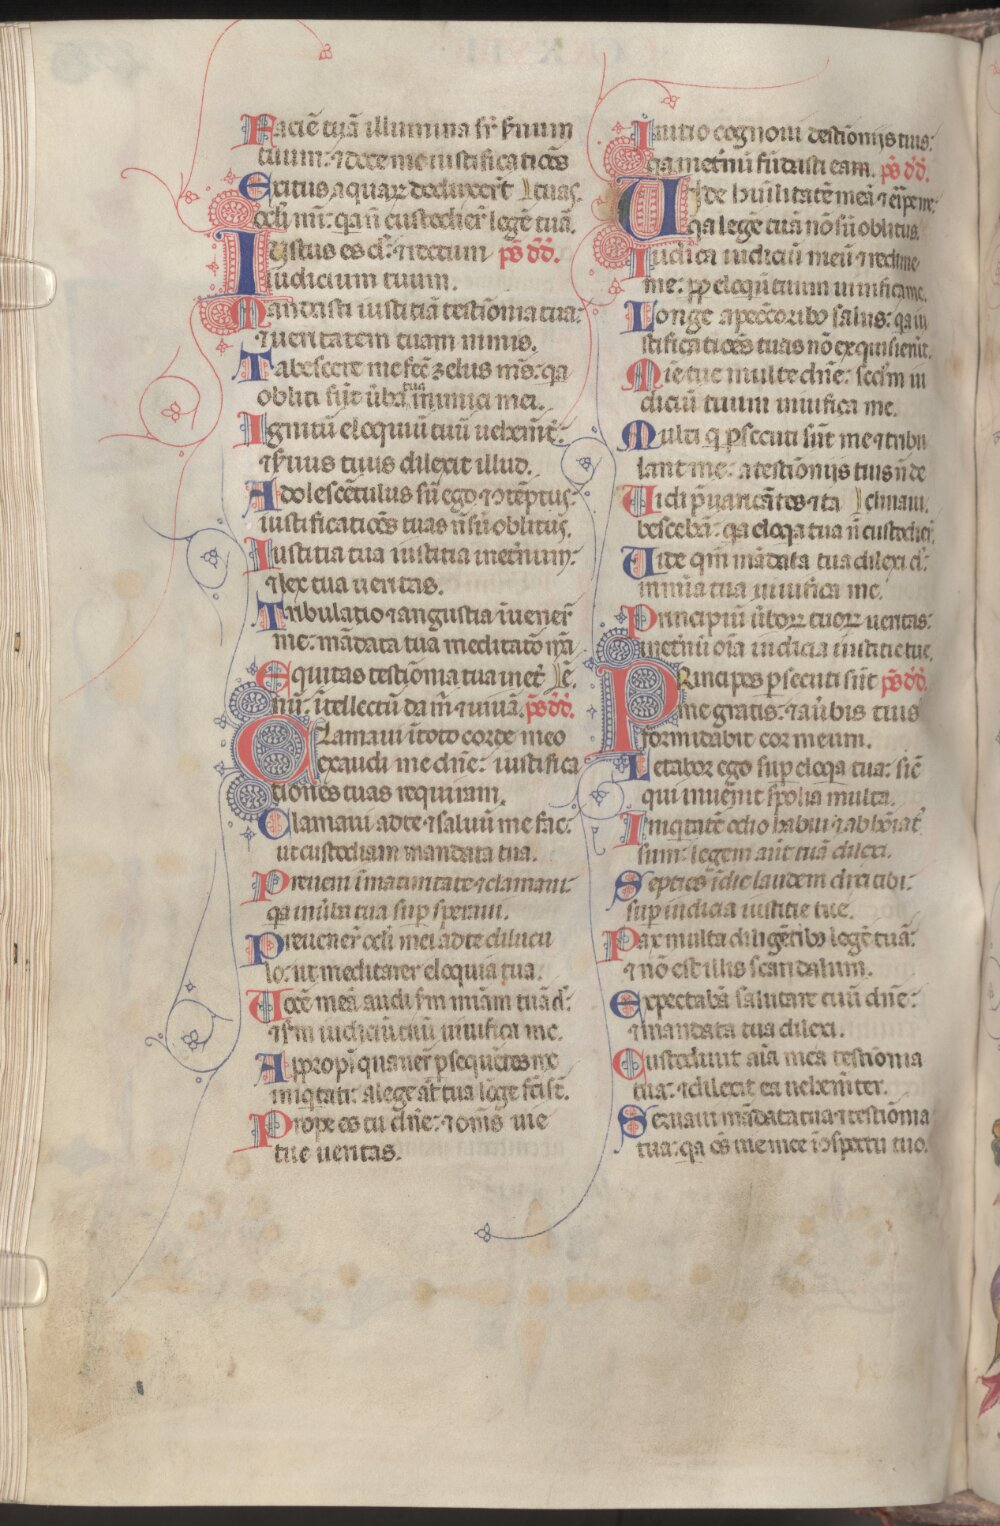 Faciē tuā illumina sr̄ s̄uum
tuum: ⁊ doce me iustificatiōes
Exitus aquaꝝ deduxert̄ tuas.
ocl̓i mī: qa n̄ custodier̄ legē tuā.
Iustus es dn̄e: ⁊ rectum ps̄ dd̄.
iudicium tuum.
Mandasti iustitiā testiōnia tua:
⁊ ueritatem tuam nimis.
Tabescere me fec̄ zelus mē̄s: qa
obliti sūt ūba tua inimici mei.
Ignitū eloquiū tuū uehem̄t̄:
⁊ s̄uus tuus dilexit illud.
Adolescētulus sū ego ⁊ ↄtēptus:
iustificatiōes tuas n̄ sū oblitus.
Iustitia tua iustitia ineternum:
⁊ lex tua ueritas.
Tribulatio ⁊ angustia īuener̄
me: mādata tua meditatō mā
Equitas testiōnia tua inet̄ ē.
nū: ītellectū da m̄ ⁊ uiuā. ps̄ dd̄.
Clamaui ītoto corde meo
exaudi me dn̄e: iustifica
tiones tuas requiram.
Clamaui adte ⁊ saluū me fac:
ut custodiam mandata tua.
Preueni īmaturitate ⁊ clamaui:
qa inūba tua sup̄ speraui.
Preuener̄ ocl̓i mei adte dilucu
lo: ut meditarer eloquia tua.
Uocē meā audi sm̄ miām tuā d̄:
⁊ sm̄ iudiciū tuū uiuifica me.
Appropīquauer̄ psequētes me
iniqtati: a lege āt tua longe fc̄i st̄.
Prope es tu dn̄e: ⁊ omīs uie
tue ueritas.
Initio cognoui detestiōnijs tuis:
qa inet̄nū fūdasti eam. ps̄ dd̄.
Uide huīlitatē meā ⁊ eripe me:
qa legē tuā nō sū oblitus.
Iudica iudiciū meū ⁊ redime
me: pp̄ eloqūi tuum uiuifica me.
Longe a peccoribꝰ salus: qa iu
stificatiōes tuas nō exquisierūt.
Mīe tue multe dn̄e: scd̄m iu
diciū tuum uiuifica me.
Multi q psecuti sūt me ⁊ tribu
lant me: a testiōnijs tuis n̄ de
Uidi p̄uaricātes ⁊ ta clinaui.
bescebā: qa eloqa tua n̄ custodier̄.
Uide qm̄ mādata tua dilexi d̄:
in mīa tua uiuifica me.
Principiū ūboꝝ tuoꝝ ueritas:
inet̄nū oīa iudicia iustitie tue.
Principes psecuti sūt ps̄ dd̄.
me gratis: ⁊ a ūbis tuis
formidabit cor meum.
Letabor ego sup̄ eloqa tua: sic̄
qui inuēnit spolia multa.
Iniqtatē odio habui ⁊ abhōīat̄
sum: legem aūt tuā dilexi.
Septies īdie laudem dixi tibi:
sup̄ iudicia iustitie tue.
Pax multa diligētibꝰ legē tuā:
⁊ nō est illis scandalum.
Expectabā salutare tuū dn̄e:
⁊ mandata tua dilexi.
Custodiuit aīa mea testiōnia
tua: ⁊ dilexit ea uehemēter.
Seruaui mādata tua ⁊ testiōnia
tua: qa oēs uie mee īↄspectu tuo.